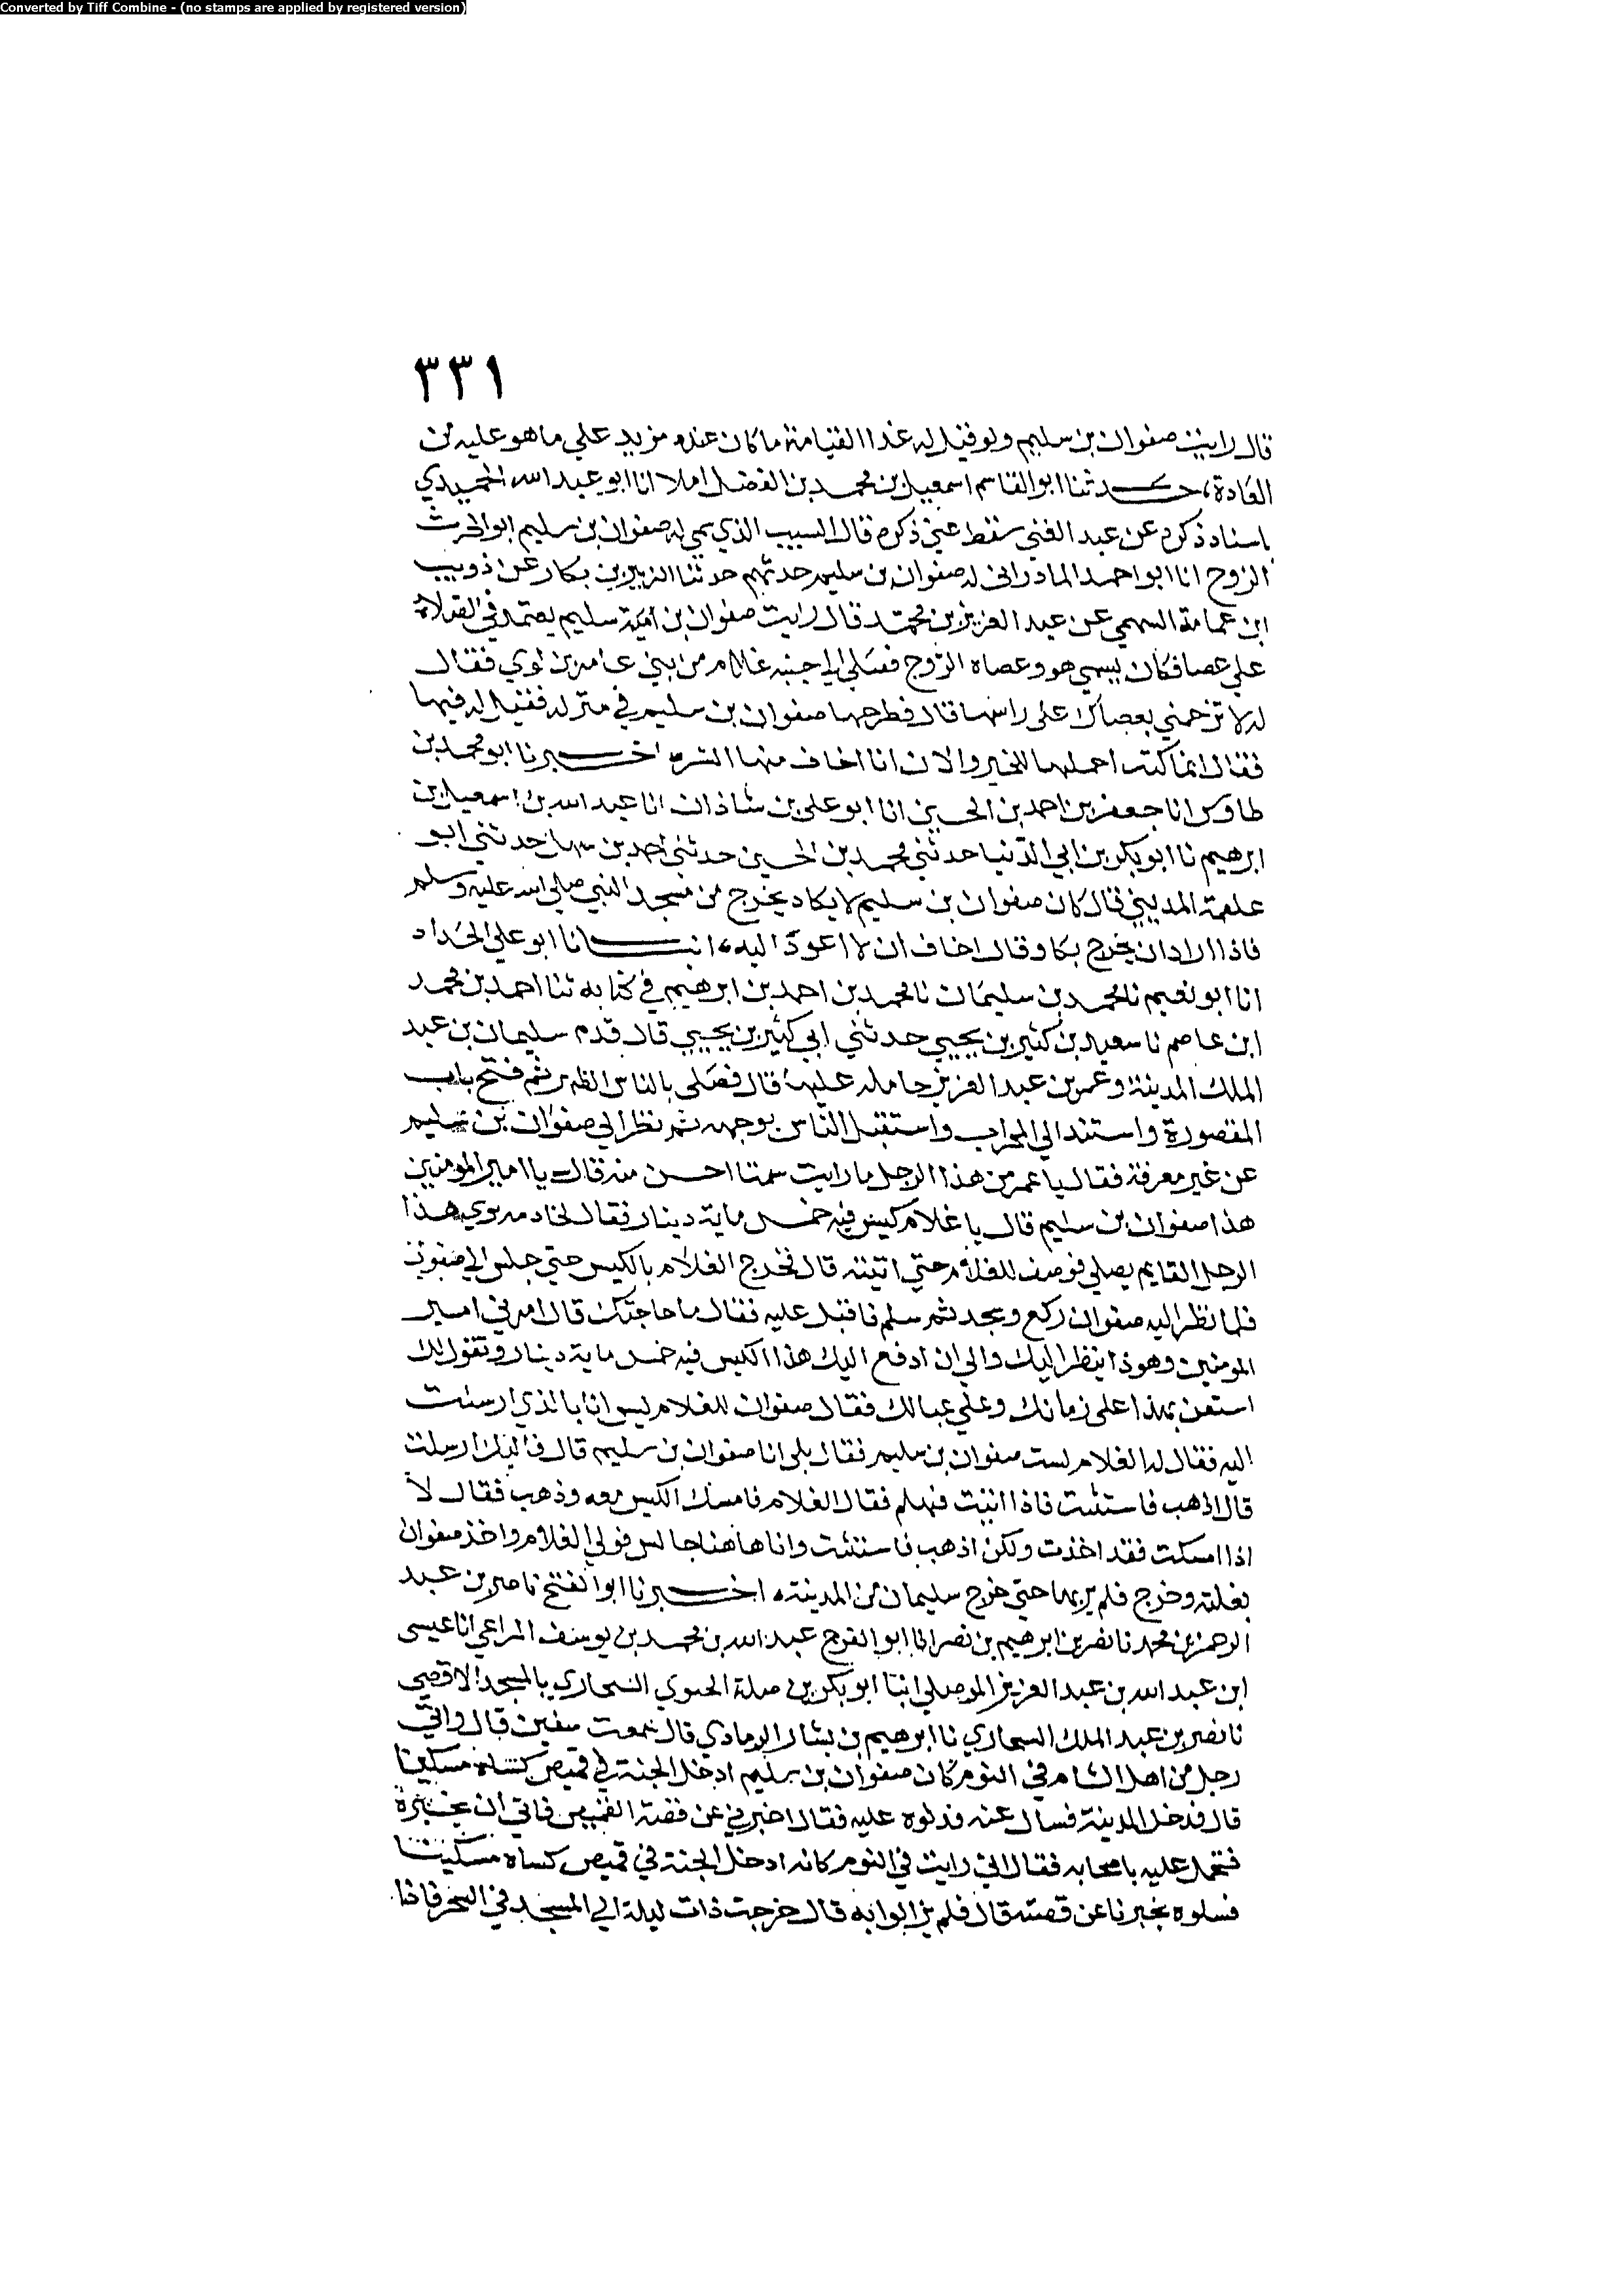 Converted by Tiff Combine - (no stamps are applied by registered version)
٣٣١
قال رايت صفوان بن سليم ولو قيل له غدا القيامة ما كان عنده مزيد علي ما هو عليه من
العادة، حدثنا ابو القاسم اسمعيل بن محمد بن الفضل املا انا ابو عبد الله الحميدي
باسناد ذكره عن عبد الغني سقط عني ذكره قال السبب الذي سمي له صفوان بن سليم ابو الحرث
الزوج انا ابو احمد المادراني له صفوان بن سليم حدثهم حدثنا الزبير بن بكار عن ذويب
ابن عمامة السهمي عن عبد العزيز بن محمد قال رايت صفوان بن امية سليم يعتمد في الصلاة
علي عصا فكان يسمي هو وعصاه الزوج فصلي الي جنبه غلام من بني عامر بن لوي فقال
له لا تزحمني بعصاك على راسها قال فطرحها صفوان بن سليم في منزله فقيل له فيها
فقال انما كنت احملها للخير والان انا اخاف منها الشر اخبرنا ابو محمد بن
طاوس انا جعفر بن احمد بن الحسين انا ابو علي بن شاذان انا عبد الله بن اسمعيل بن
ابرهيم نا ابو بكر بن ابي الدنيا حدثني محمد بن الحسين حدثني احمد بن سهل حدثني ابو
علقمة المديني قال كان صفوان بن سليم لا يكاد يخرج من مسجد النبي صلي الله عليه وسلم
فاذا اراد ان يخرج بكا وقال اخاف ان لا اعود اليه، انبانا ابو علي الحداد
انا ابو نعيم نا محمد بن سليمان نا محمد بن احمد بن ابرهيم في كتابه ثنا احمد بن محمد
ابن عاصم نا سعيد بن كثير بن يحيي حدثني ابي كثير بن يحيي قال قدم سليمان بن عبد
الملك المدينة وعمر بن عبد العزيز حامله عليها قال فصلى بالناس الظهر ثم فتح باب
المقصورة واستند الي المحراب واستقبل الناس بوجهه ثم نظر الي صفوان بن سليم
عن غير معرفة فقال يا عمر من هذا الرجل ما رايت سمتا احسن منه قال يا امير المومنين
هذا صفوان بن سليم قال يا غلام كيس فيه خمس ماية دينار فقال لخادمه بوي هذا
الرجل القايم يصلي فوصف للغلام حتي اتيته قال فخرج الغلام بالكيس حتي جلس الي صفوان
فلما نظر اليه صفوان ركع وسجد ثم سلم فاقبل عليه فقال ما حاجتك قال امرني امير
المومنين وهو ذا ينظر اليك والي ان ادفع اليك هذا الكيس فيه خمس ماية دينار وتقول لك
استعن بهذا على زمانك وعلي عيالك فقال صفوان للغلام ليس انا بالذي ارسلت
اليه فقال له الغلام لست صفوان بن سليم فقال بلي انا صفوان بن سليم قال فاليك ارسلت
قال اذهب فاستثبت فاذا اثبت فهلم فقال الغلام فامسك الكيس معه وذهب فقال لا
اذا امسكت فقد اخذت ولكن اذهب فاستثبت وانا هاهنا جالس فولي الغلام واخذ صفوان
نعليه وخرج فلم ير بها حتي خرج سليمان من المدينة، اخبرنا ابو الفتح ناصر بن عبد
الرحمن بن محمد نا نصر بن ابرهيم بن نصر انا ابو الفرج عبد الله بن محمد بن يوسف المراعي انا عيسى
ابن عبد الله بن عبد العزيز الموصلي انبا ابو بكر بن صلة الحيوي السحاري بالمسجد الاقصي
نا نصر بن عبد الملك السحاري نا ابرهيم بن بشار الرمادي قال سمعت سفين قال واتي
رجل من اهل الشام في النوم كان صفوان بن سليم ادخل الجنة في قميص كساه مسكينا
قال فدخل المدينة فسال عنه فدلوه عليه فقال اخبرني عن قصة القميص فاتي ان يخبره
فتحمل عليه باصحابه فقال اني رايت في النوم كانه ادخل الجنة في قميص كساه مسكينا
فسلوه يخبرنا عن قصته قال فلم يزالوا به قال خرجت ذات ليلة الي المسجد في السحر فاذا